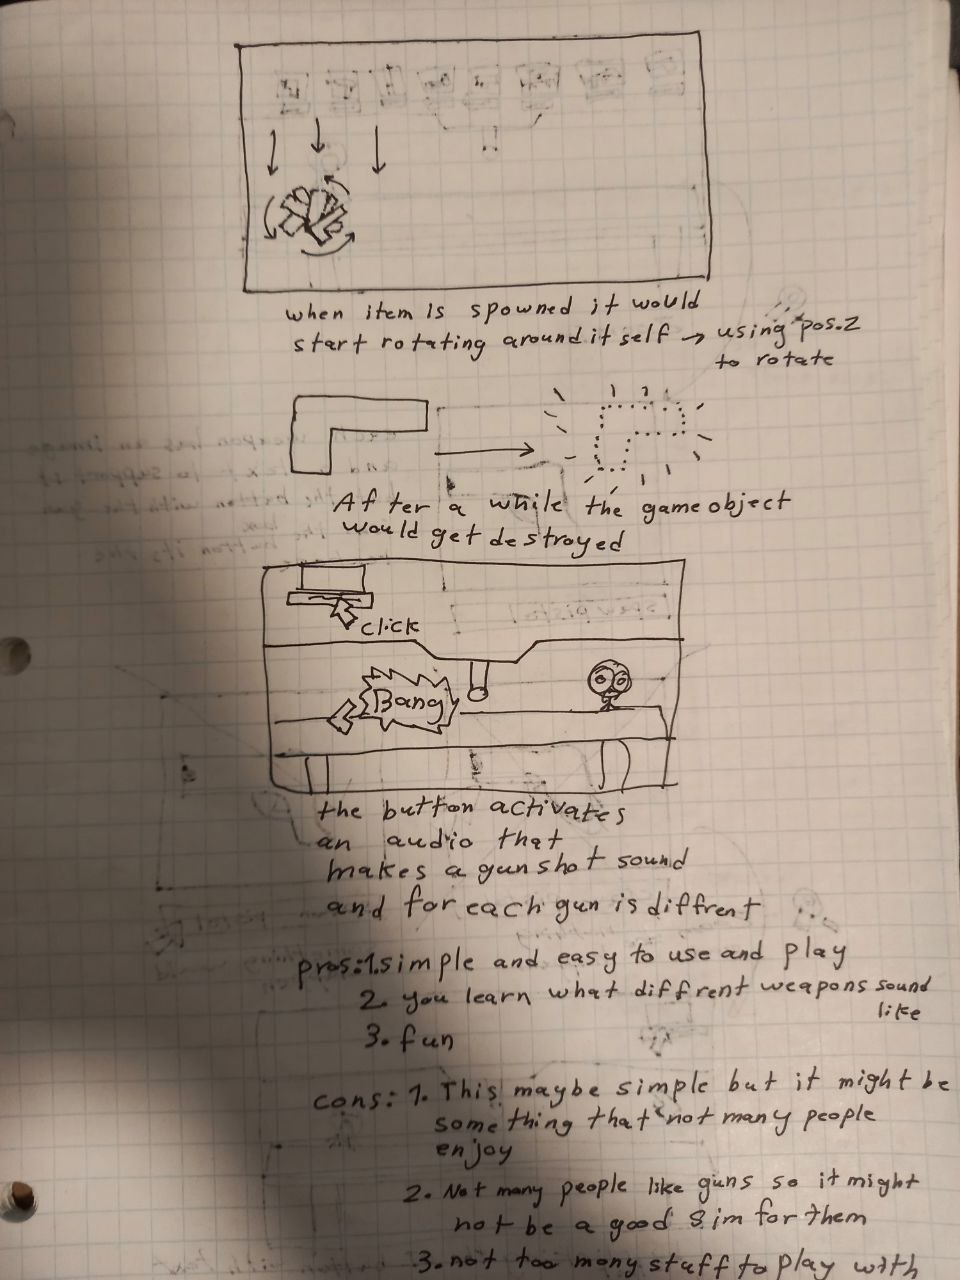 when item is spowned it would
start rotating around it self → using pos.z
to rotate
After a while the game object
would get destroyed
click
Bang
the button activates
an audio that
makes a gunshot sound
and for each gun is diffrent ...
pros: 1. simple and easy to use and play
2. you learn what diffrent weapons sound
like
3. fun
cons: 1. This maybe simple but it might be
something that not many people
enjoy
2. Not many people like guns so it might
not be a good sim for them
3. not too many staff to play with